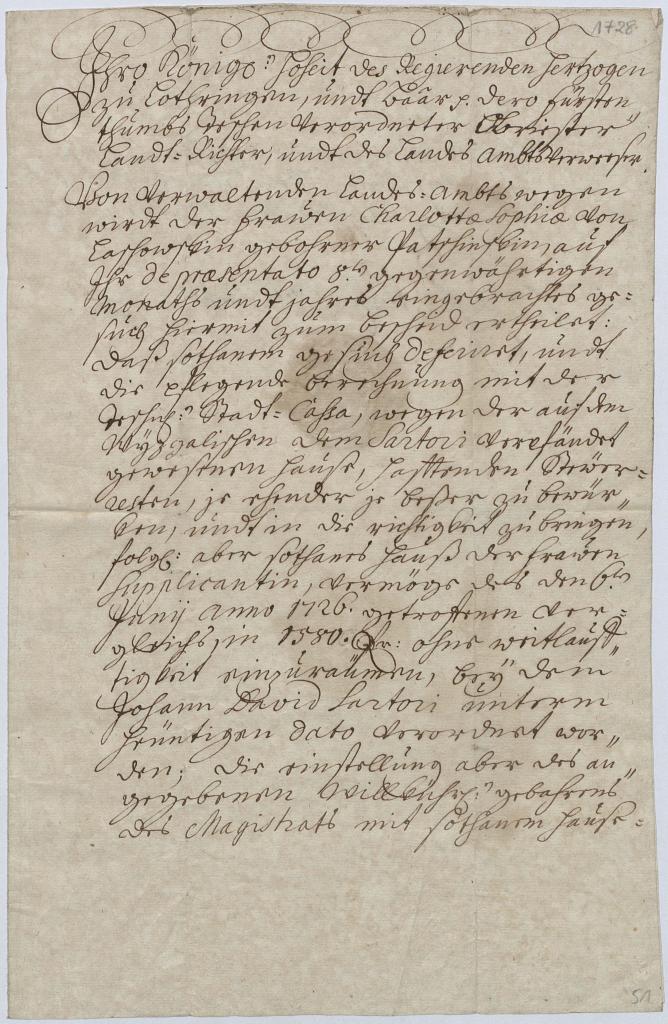 1728.
Ihro Königl: Hoheit des Regierenden Hertzogen
zu Lothringen, undt Baar p. dero Fürsten
thumbs Teschen Verordneter Obrister
Landt=Richter, undt des Landes Ambts Verweeser.
Von Verwaltenden Landes=Ambts wegen
wirdt der Frawen Charlottæ Sophiæ Von
Laschowskin gebohrner Patschinskin, auf
Ihr de præsentato 8.ten gegenwährtigen
Monaths undt jahres eingebrachtes ge=
such hiermit zum bescheid ertheilet:
Daß sothanem gesuch deferiret, undt
die pflegende berechnung mit der
Teschn: Stadt=Cassa, wegen der auf dem
dem Sartori verpfändet
gewesenen Hause, hafftenden Stewer=
resten, je ehender je beßer zu bewür"
ken, undt in die richtigkeit zu bringen,
folgl: aber sothanes Hauß der Frawen
Supplicantin, vermöge des den 6.ten
Junij Anno 1726. getroffenen Ver=
gleichs, in 1580. ohne weitläuff"
tigkeit einzuraümen, bey dem
Johann David Sartori unterm
heüntigen dato verordnet wor"
den; die einstellung aber des an"
gegebenen Willkührl: gebahrens
des Magistrats mit sothanem Hause=
51